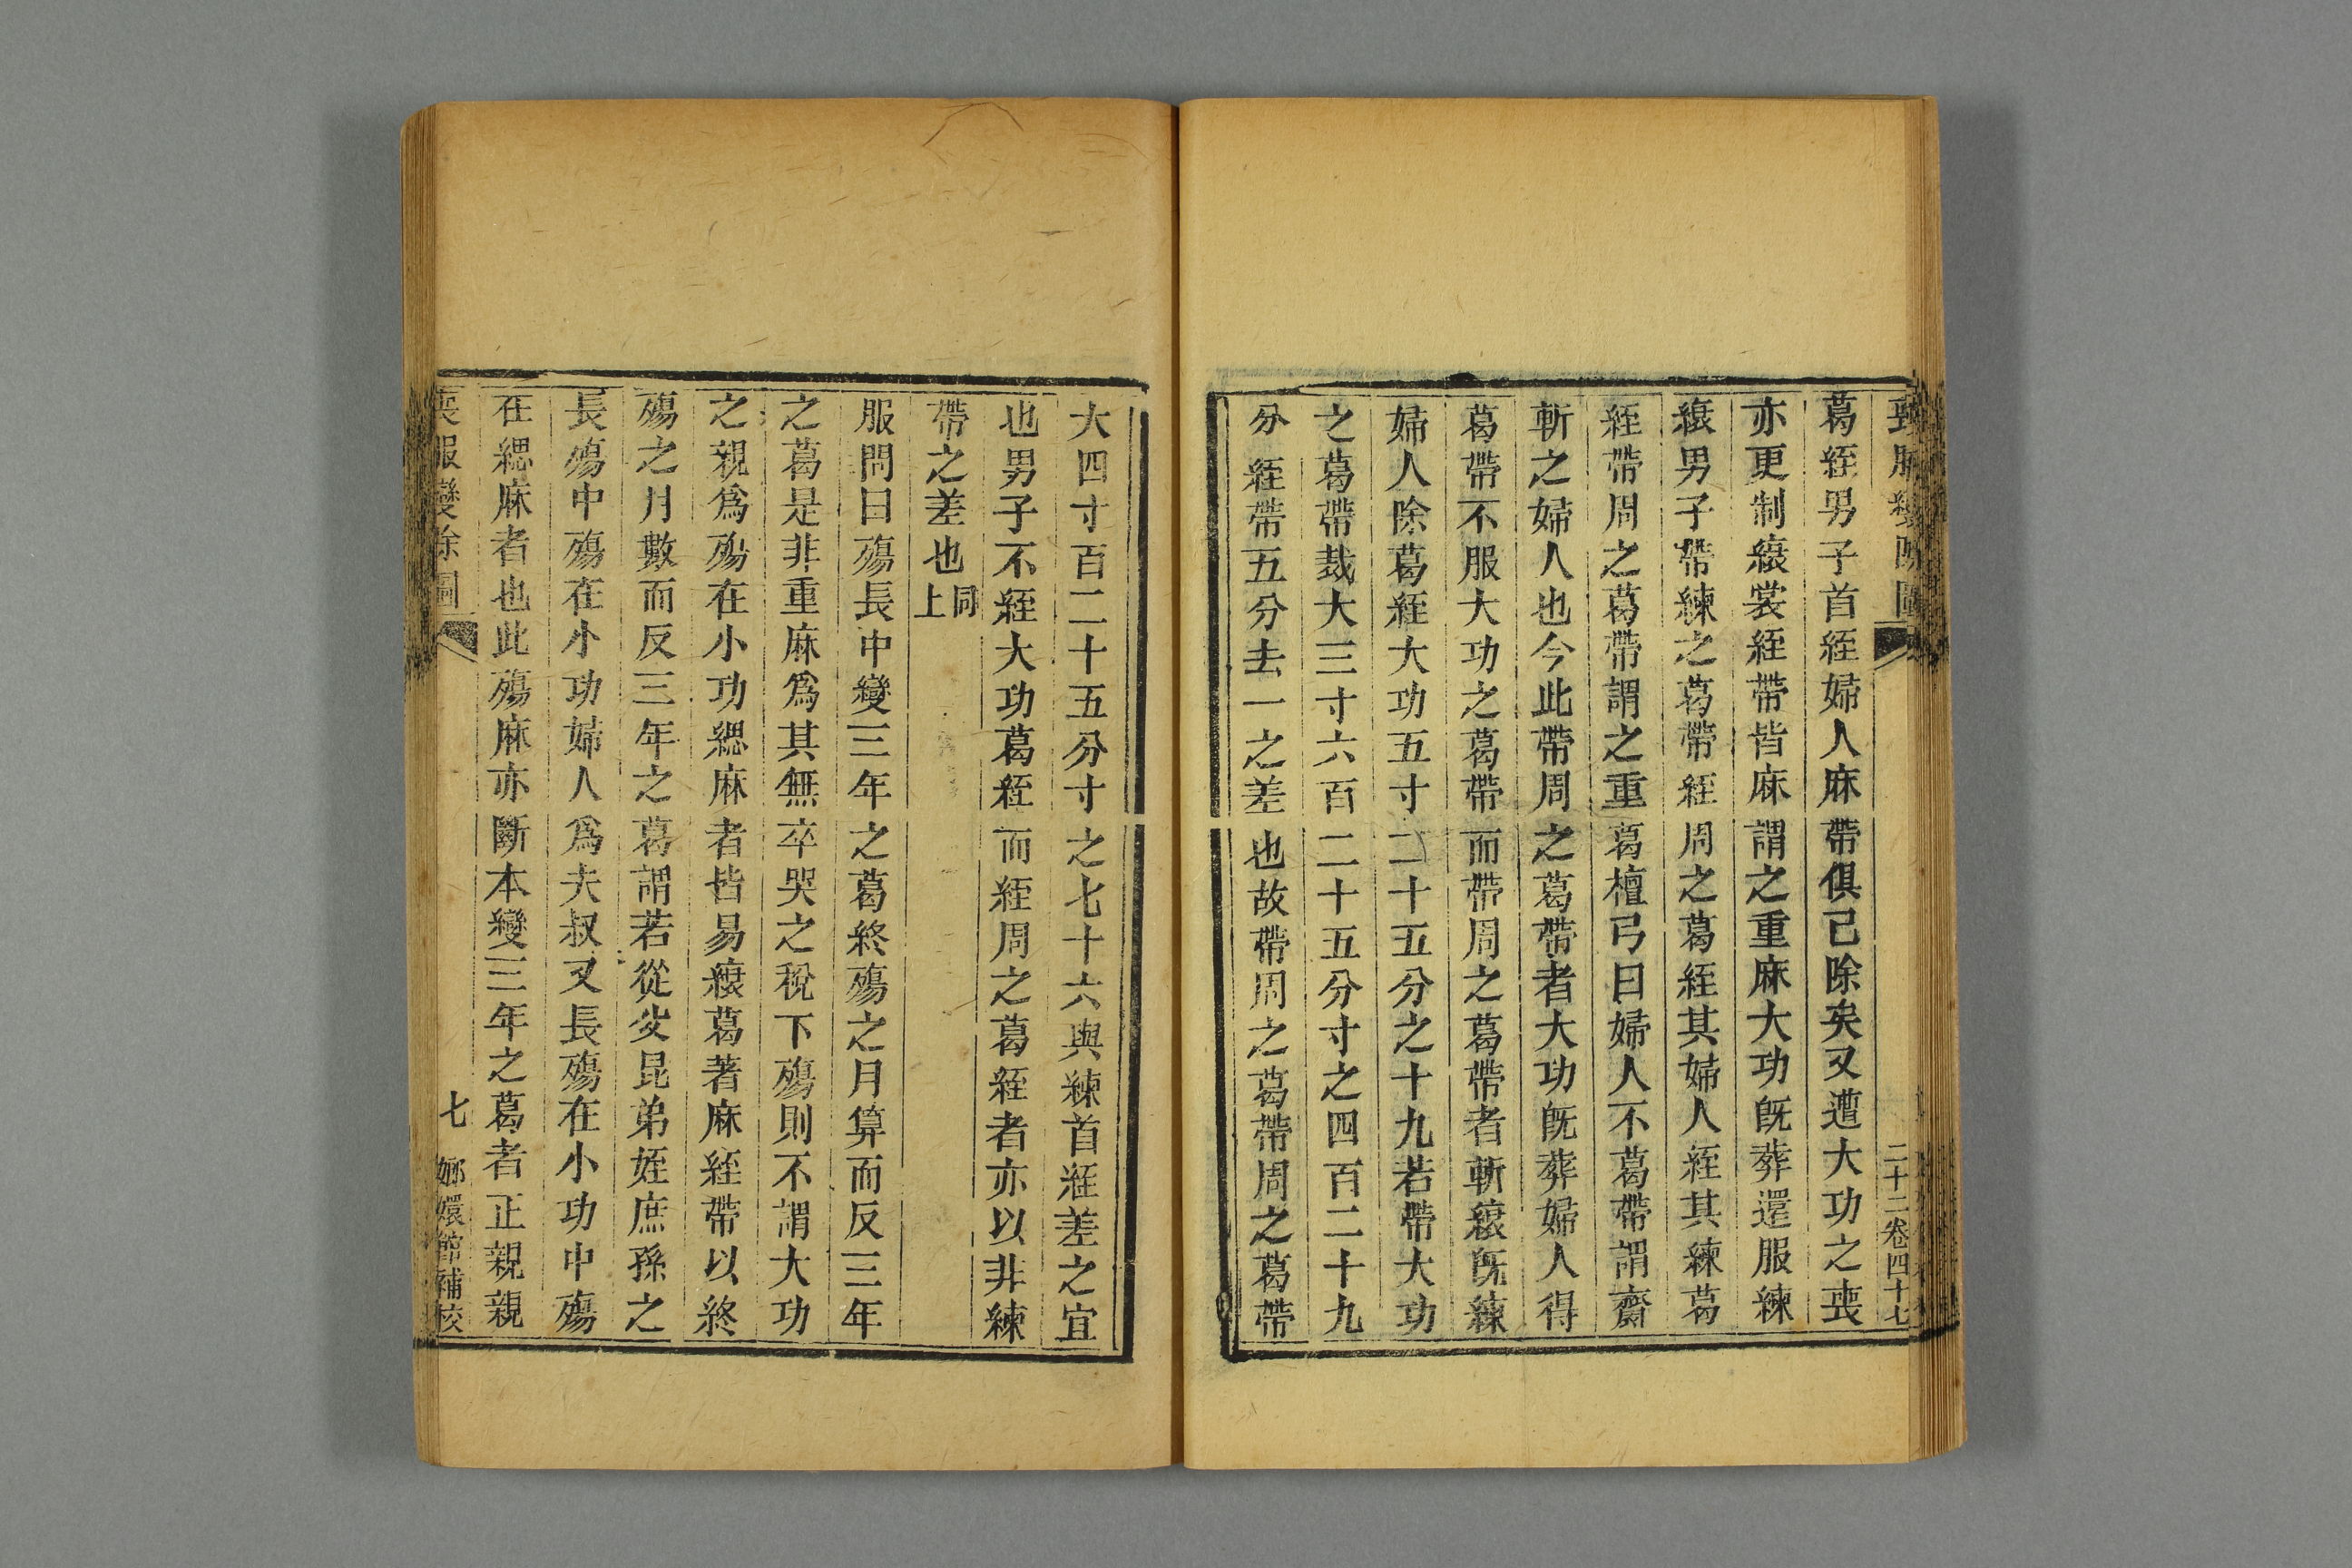 喪服變除圖
二十二卷四十七
葛絰男子首絰婦人麻帶俱已除矣又遭大功之喪
亦更制縗裳絰帶皆麻謂之重麻大功旣葬還服練
縗男子帶練之葛帶絰周之葛絰其婦人絰其練葛
絰帶周之葛帶謂之重葛檀弓曰婦人不葛帶謂齋
斬之婦人也今此帶周之葛帶者大功旣葬婦人得
葛帶不服大功之葛帶而帶周之葛帶者斬縗旣練
婦人除葛絰大功五寸二十五分之十九若帶大功
之葛帶裁大三寸六百二十五分寸之四百二十九
分絰帶五分去一之差也故帶周之葛帶帶周之葛帶
大四寸百二十五分寸之七十六與練首絰差之宜
也男子不絰大功葛絰而絰周之葛絰者亦以非練
帶之差也同上
服問曰殤長中變三年之葛終殤之月算而反三年
之葛是非重麻爲其無卒哭之稅下殤則不謂大功
之親爲殤在小功緦麻者皆易縗葛著麻絰帶以終
殤之月數而反三年之葛謂若從父昆弟姪庶孫之
長殤中殤在小功婦人爲夫叔父長殤在小功中殤
在緦麻者也此殤麻亦斷本變三年之葛者正親親
喪服變除圖
七
嫏嬛館補校